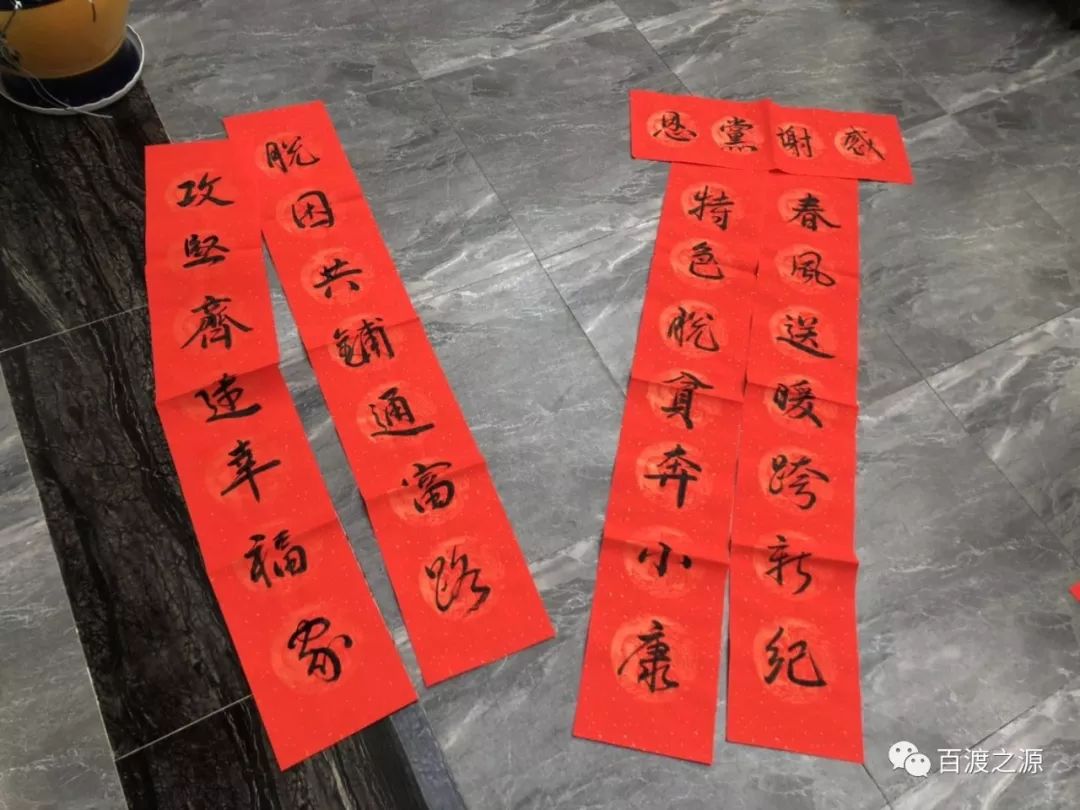 感谢黨恩
春風送暖跨新纪
特色脱貧奔小康
脱困共鋪通富路
攻坚齊建幸福家
百渡之源